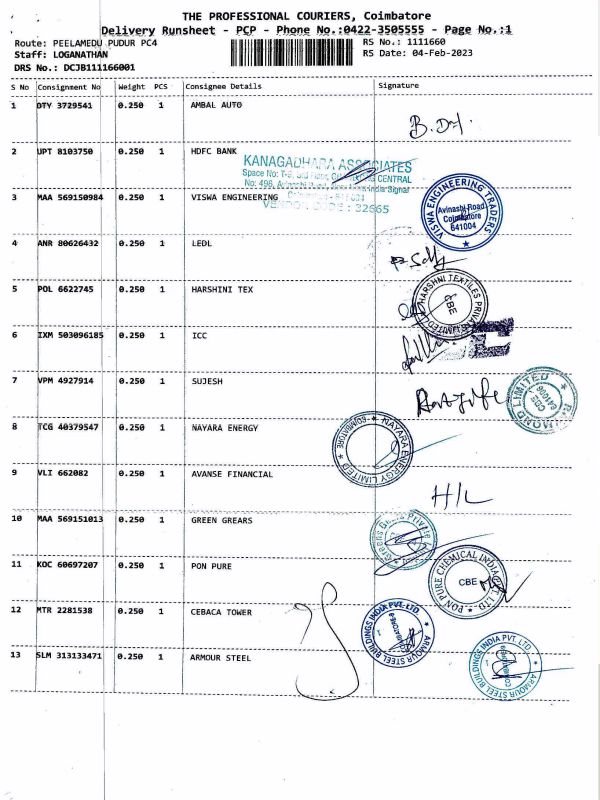 THE PROFESSIONAL COURIERS, Coimbatore
Delivery Runsheet - PCP - Phone No.:0422-3505555 - Page No.:1
Route: PEELAMEDU PUDUR PC4 RS No.: 1111660
Staff: LOGANATHAN RS Date: 04-Feb-2023
DRS No.: DCJB111166001
S No Consignment No Weight PCS Consignee Details Signature
1 DTY 3729541 0.250 1 AMBAL AUTO
2 UPT 8103750 0.250 1 HDFC BANK
KANAGADHARA ASSOCIATES
Space No: CENTRAL
No: 496, Signal
3 MAA 569150984 0.250 1 VISWA ENGINEERING
VENDOR CODE : 32665
VISWA ENGINEERING TRADERS
Avinashi Road
Coimbatore
641004
4 ANR 80626432 0.250 1 LEDL
5 POL 6622745 0.250 1 HARSHINI TEX
HARSHNI TEXTILES PRIVATE LIMITED
CBE
6 IXM 503096185 0.250 1 ICC
7 VPM 4927914 0.250 1 SUJESH
LIMITED
8 TCG 40379547 0.250 1 NAYARA ENERGY
NAYARA ENERGY LIMITED
COIMBATORE
9 VLI 662082 0.250 1 AVANSE FINANCIAL
H/L
10 MAA 569151013 0.250 1 GREEN GREARS
11 KOC 60697207 0.250 1 PON PURE
PON PURE CHEMICAL INDIA PVT. LTD
CBE
12 MTR 2281538 0.250 1 CEBACA TOWER
ARMOUR STEEL BUILDINGS INDIA PVT. LTD
13 SLM 313133471 0.250 1 ARMOUR STEEL
ARMOUR STEEL BUILDINGS INDIA PVT. LTD